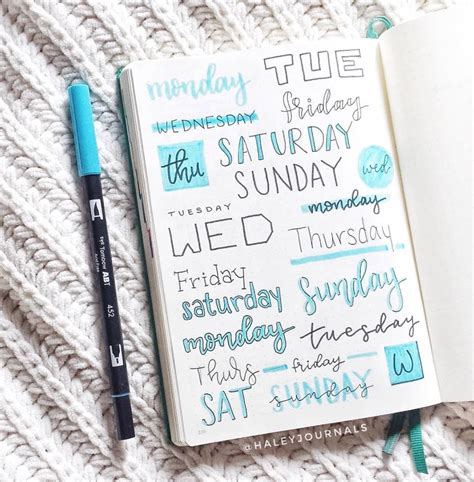 monday TUE
WEDNESDAY friday
thu SATURDAY wed
SUNDAY
TUESDAY monday
WED Thursday
Friday
saturday Sunday
monday tuesday
Thurs friday W
SAT SUNDAY
@HALEYJOURNALS
Tombow ABT
452